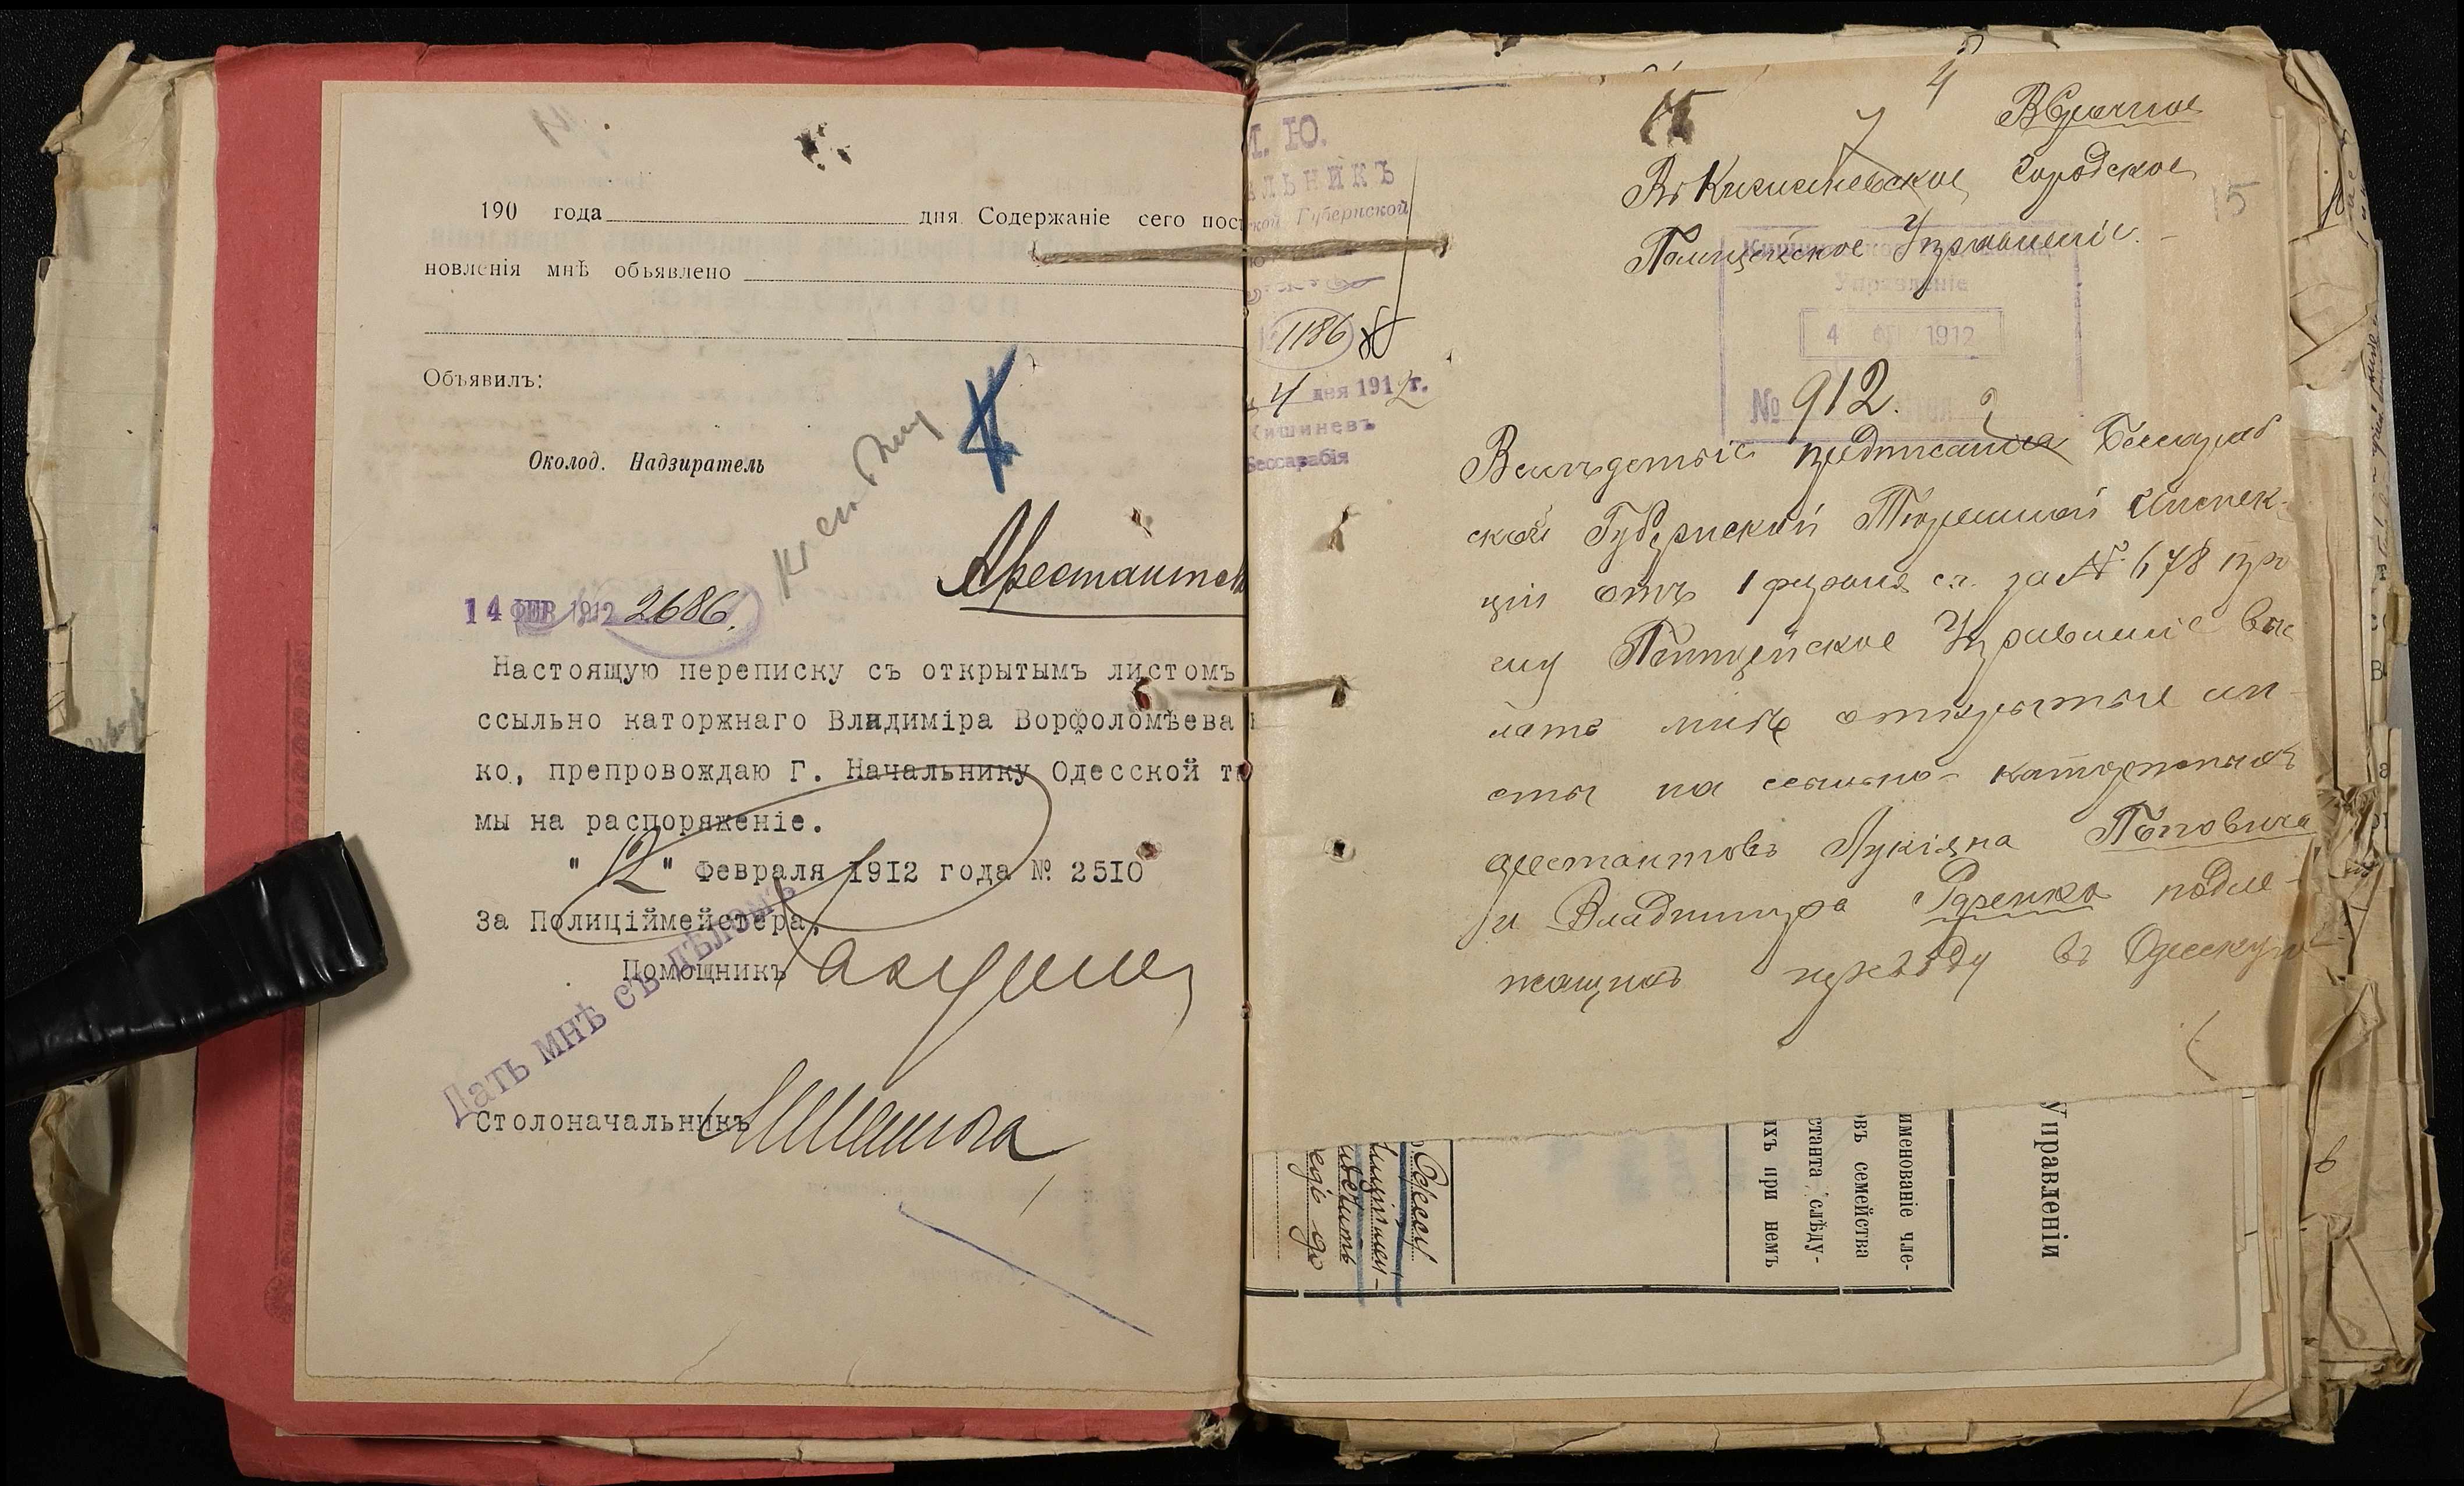 190 года дня. Содержаніе сего пост
новленія мнѣ объявлено
Объявилъ:
Околод. Надзиратель
Арестантск
14 ФЕВ 1912 2686.
Настоящую переписку съ открытымъ листомъ
ссыльно каторжнаго Владиміра Ворфоломѣева
ко, препровождаю Г. Начальнику Одесской т
мы на распоряженіе.
" 12 " Февраля 1912 года № 2510
За Полиціймейстера,
Помощникъ
Дать мнѣ съ дѣломъ
Столоначальникъ
И. Ю.
АЛЬНИКЪ
ской Губернской
1186
4 дня 1912 г.
Кишиневъ
Бессарабія
4
15
Срочное
Въ Кишиневское Городское
Полицейское Управленіе.
Управленіе
4 1912
№ 912.
Вслѣдствіе предписанія Бессараб
ской Губернской Тюремной Инспек-
ціи отъ 1 февраля с.г. за № 678 про
шу Полицейское Управленіе выс
лать мнѣ открытые ли-
сты на ссыльно-каторжныхъ
арестантовъ Лукіяна Поповича
и Владиміра Яренко подле-
жащихъ переводу въ Одесскую
Управленіи
именованіе чле-
овъ семейства
станта слѣду-
ихъ при немъ
Одессу